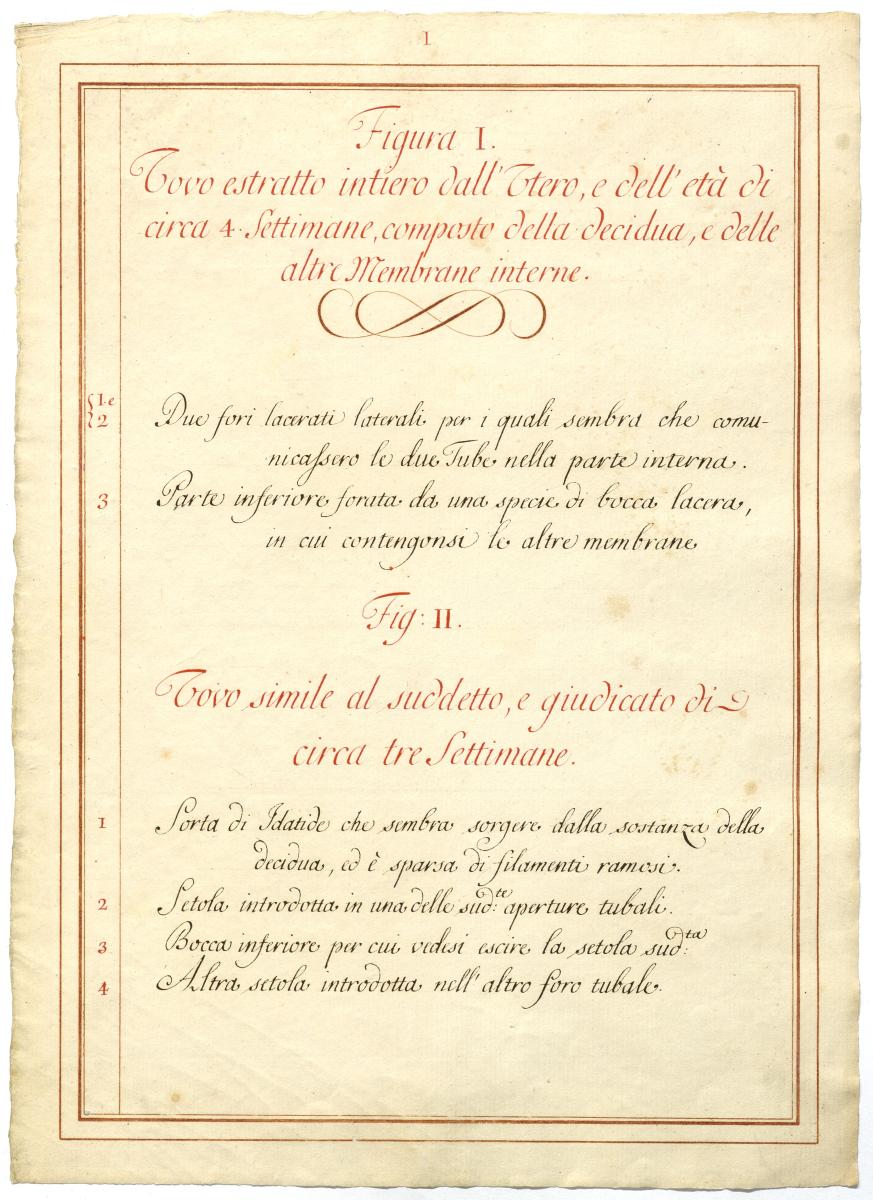 I
Figura I.
Vovo estratto intiero dall' Vtero, e dell' età di
circa 4. Settimane, composto della decidua, e delle
altre Membrane interne.
1. e
2 Due fori lacerati laterali per i quali sembra che comu-
nicassero le due Tube nella parte interna.
3 Parte inferiore forata da una specie di bocca lacera,
in cui contengonsi le altre membrane
Fig: II.
Vovo simile al suddetto, e giudicato di
circa tre Settimane.
1 Sorta di Idatide che sembra sorgere dalla sostanza della
decidua, ed è sparsa di filamenti ramosi.
2 Setola introdotta in una delle sud:te aperture tubali.
3 Bocca inferiore per cui vedesi escire la setola sud:ta
4 Altra setola introdotta nell' altro foro tubale.